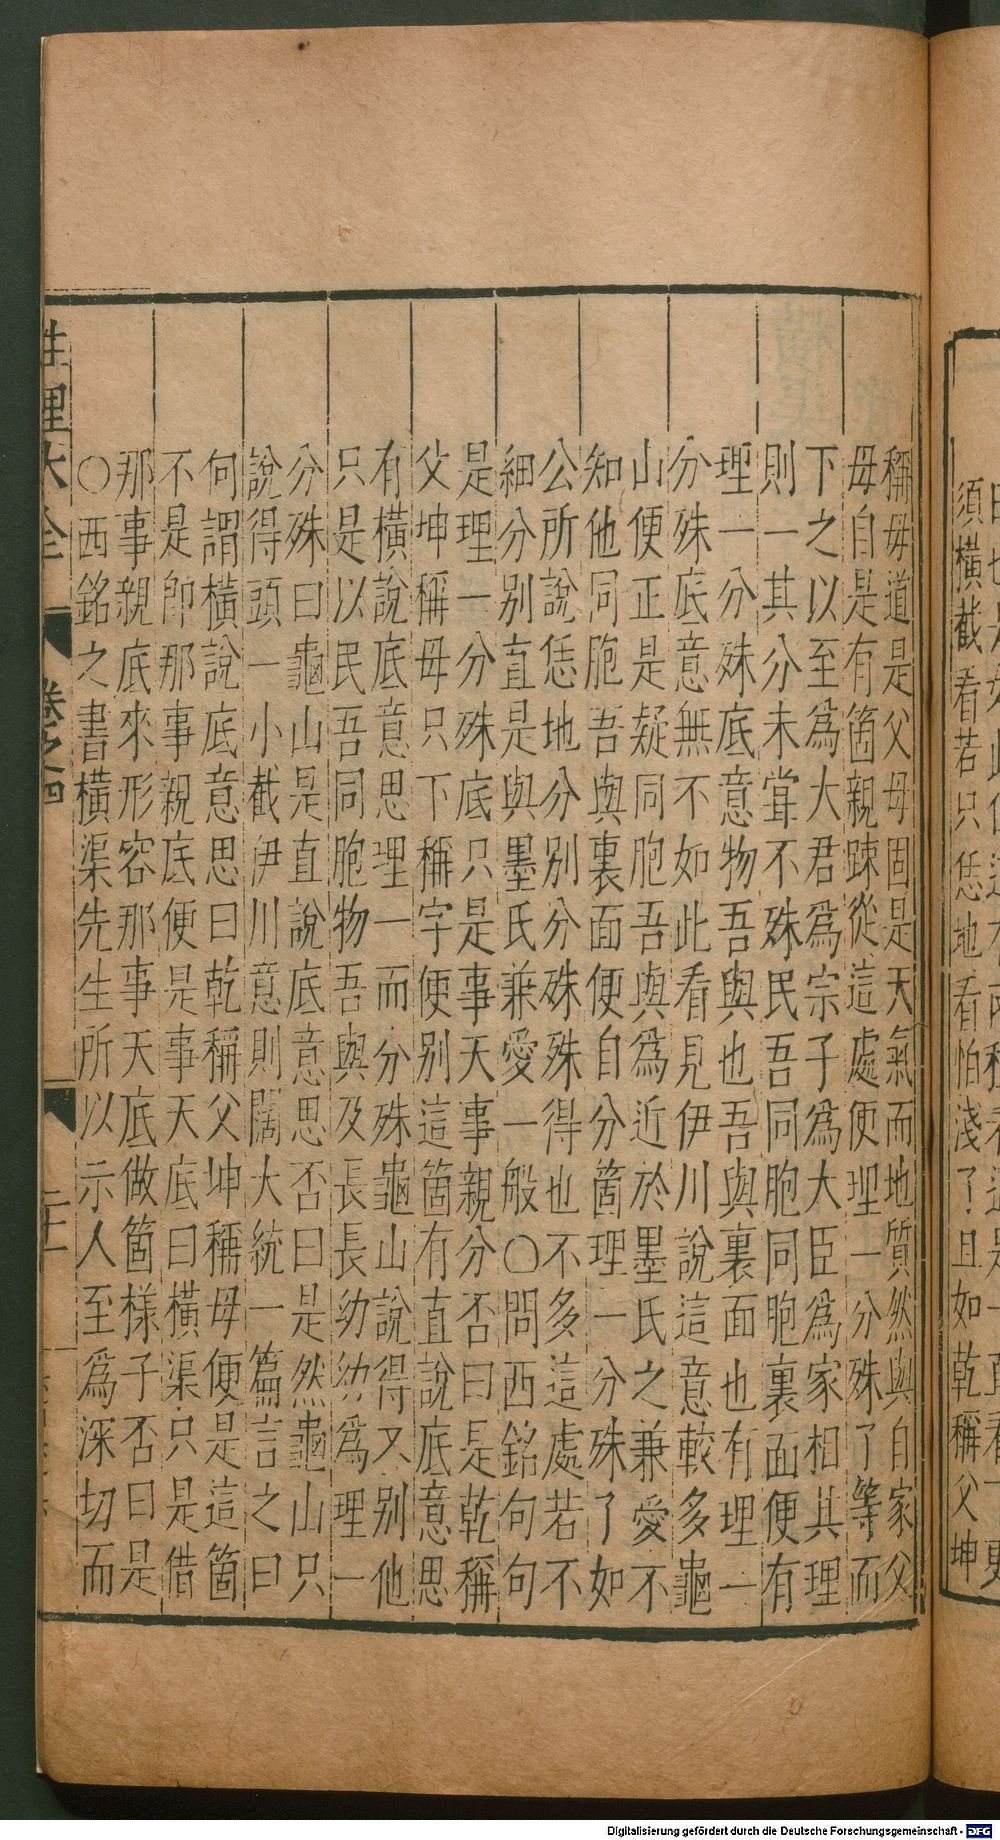 須橫截看若只恁地看怕淺了且如乾稱父坤
稱毋道是父母固是天氣而地質然與自家父
毋自是有箇親踈從這處便理一分殊了等而
下之以至爲大君爲宗子爲大臣爲家相其理
則一其分未甞不殊民吾同胞同胞裏面便有
理一分殊底意物吾與也吾與裏面也有理一
分殊底意無不如此看見伊川說這意較多龜
山便正是疑同胞吾與爲近於墨氏之兼愛不
知他同胞吾與裏面便自分箇理一分殊了如
公所說恁地分別分殊殊得也不多這處若不
細分別直是與墨氏兼愛一般〇問西銘句句
是理一分殊底只是事天事親分否曰是乾稱
父坤稱毋只下稱字便別這箇有直說底意思
有橫說底意思理一而分殊龜山說得又別他
只是以民吾同胞物吾與及長長幼幼爲理一
分殊曰龜山是直說底意思否曰是然龜山只
說得頭一小截伊川意則闊大統一篇言之曰
何謂橫說底意思曰乾稱父坤稱毋便是這箇
不是卽那事親底便是事天底曰橫渠只是借
那事親底來形容那事天底做箇樣子否曰是
〇西銘之書橫渠先生所以示人至爲深切而
性理大全 卷之四
Digitalisierung gefördert durch die Deutsche Forschungsgemeinschaft - DFG